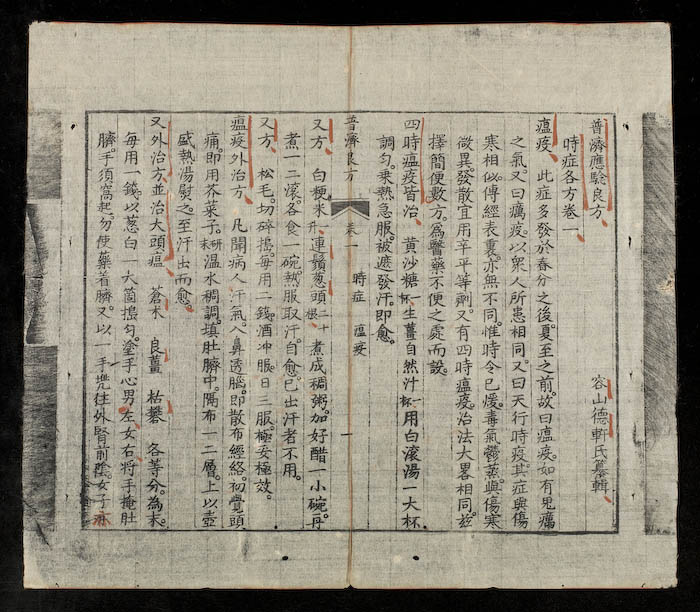 普濟應驗良方
時症各方卷一
容山德軒氏纂輯
瘟疫　此症多發於春分之後。夏至之前。故曰瘟疫。如有鬼癘
之氣。又曰癘疫。以衆人所患相同。又曰天行時疫。其症與傷
寒相似。傳經表裏。亦無不同。惟時令已煖。毒氣鬱蒸。與傷寒
微異。發散宜用辛平等劑。又有四時瘟疫。治法大畧相同。茲
擇簡便數方。爲醫藥不便之處而設。
四時瘟疫皆治　黃沙糖一杯生薑自然汁一杯用白滾湯一大杯
調勻。乘熱急服。被遮發汗即愈。
普濟良方　卷一　時症　瘟疫　一
又方　白粳米　連鬚葱頭二十根　煮成稠粥。加好醋一小碗。再
煮一二滾。各食一碗。熱服取汗。自愈。已出汗者不用。
又方　松毛。切碎搗。每用二錢。酒冲服。日三服。極妙極效。
瘟疫外治方　凡聞病人汗氣。入鼻透腦。即散布經絡。初覺頭
痛。即用芥菜子。研末温水稠調。填肚臍中。隔布一二層。上以壺
盛熱湯熨之。至汗出而愈。
又外治方並治大頭瘟　蒼朮　良薑　枯礬　各等分。為末。
每用一錢。以葱白一大箇搗勻。塗手心。男左女右。將手掩肚
臍。手須窩起。勿使藥着臍。又以一手兠住外腎前陰。女子亦